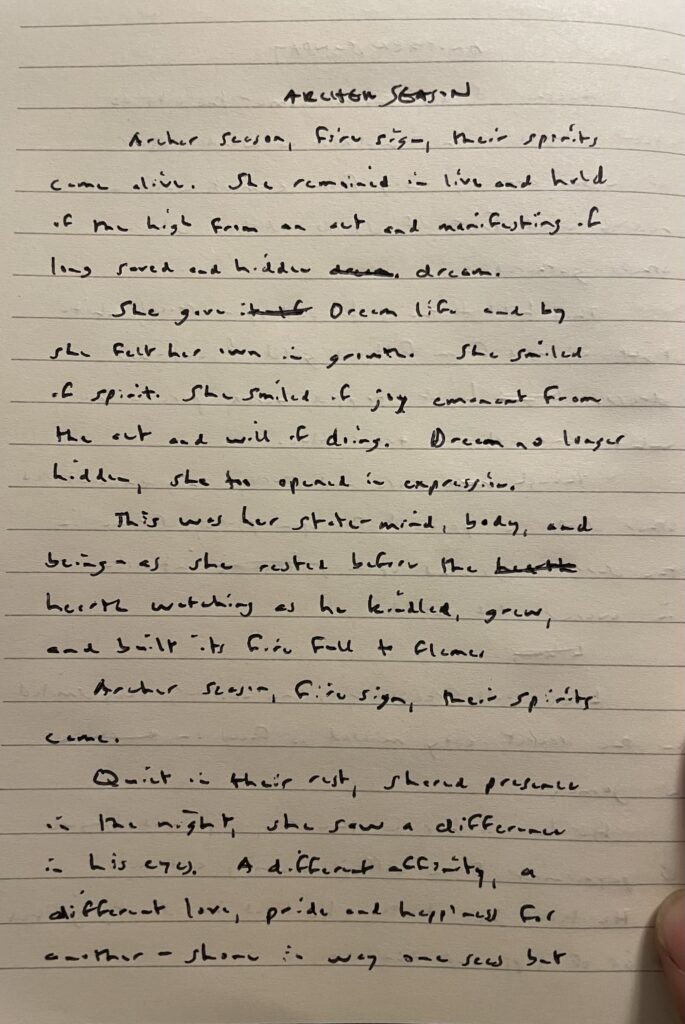 ARCHER SEASON
Archer season, fire sign, their spirits
came alive. She remained in live and hold
of the high from an act and manifesting of
long saved and hidden dream.
She gave Dream life and by
she felt her own in growth. She smiled
of spirit. She smiled of joy emanant from
the act and will of doing. Dream no longer
hidden, she too opened in expression.
This was her state-mind, body, and
being-as she rested before the
hearth watching as he kindled, grew,
and built its fire full to flames
Archer season, fire sign, their spirits
came.
Quiet in their rest, shared presence
in the night, she saw a difference
in his eyes. A different affinity, a
different love, pride and happiness for
another - shone in way one sees but